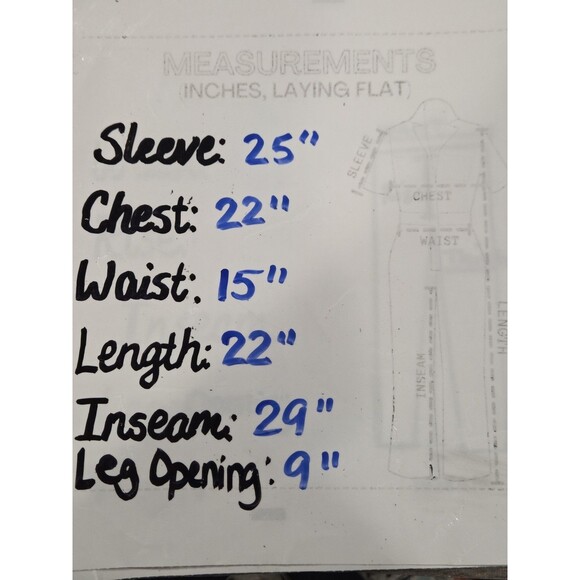 MEASUREMENTS
(INCHES, LAYING FLAT)
Sleeve: 25"
SLEEVE
Chest: 22"
CHEST
Waist: 15"
WAIST
Length: 22"
LENGTH
Inseam: 29"
INSEAM
Leg Opening: 9"